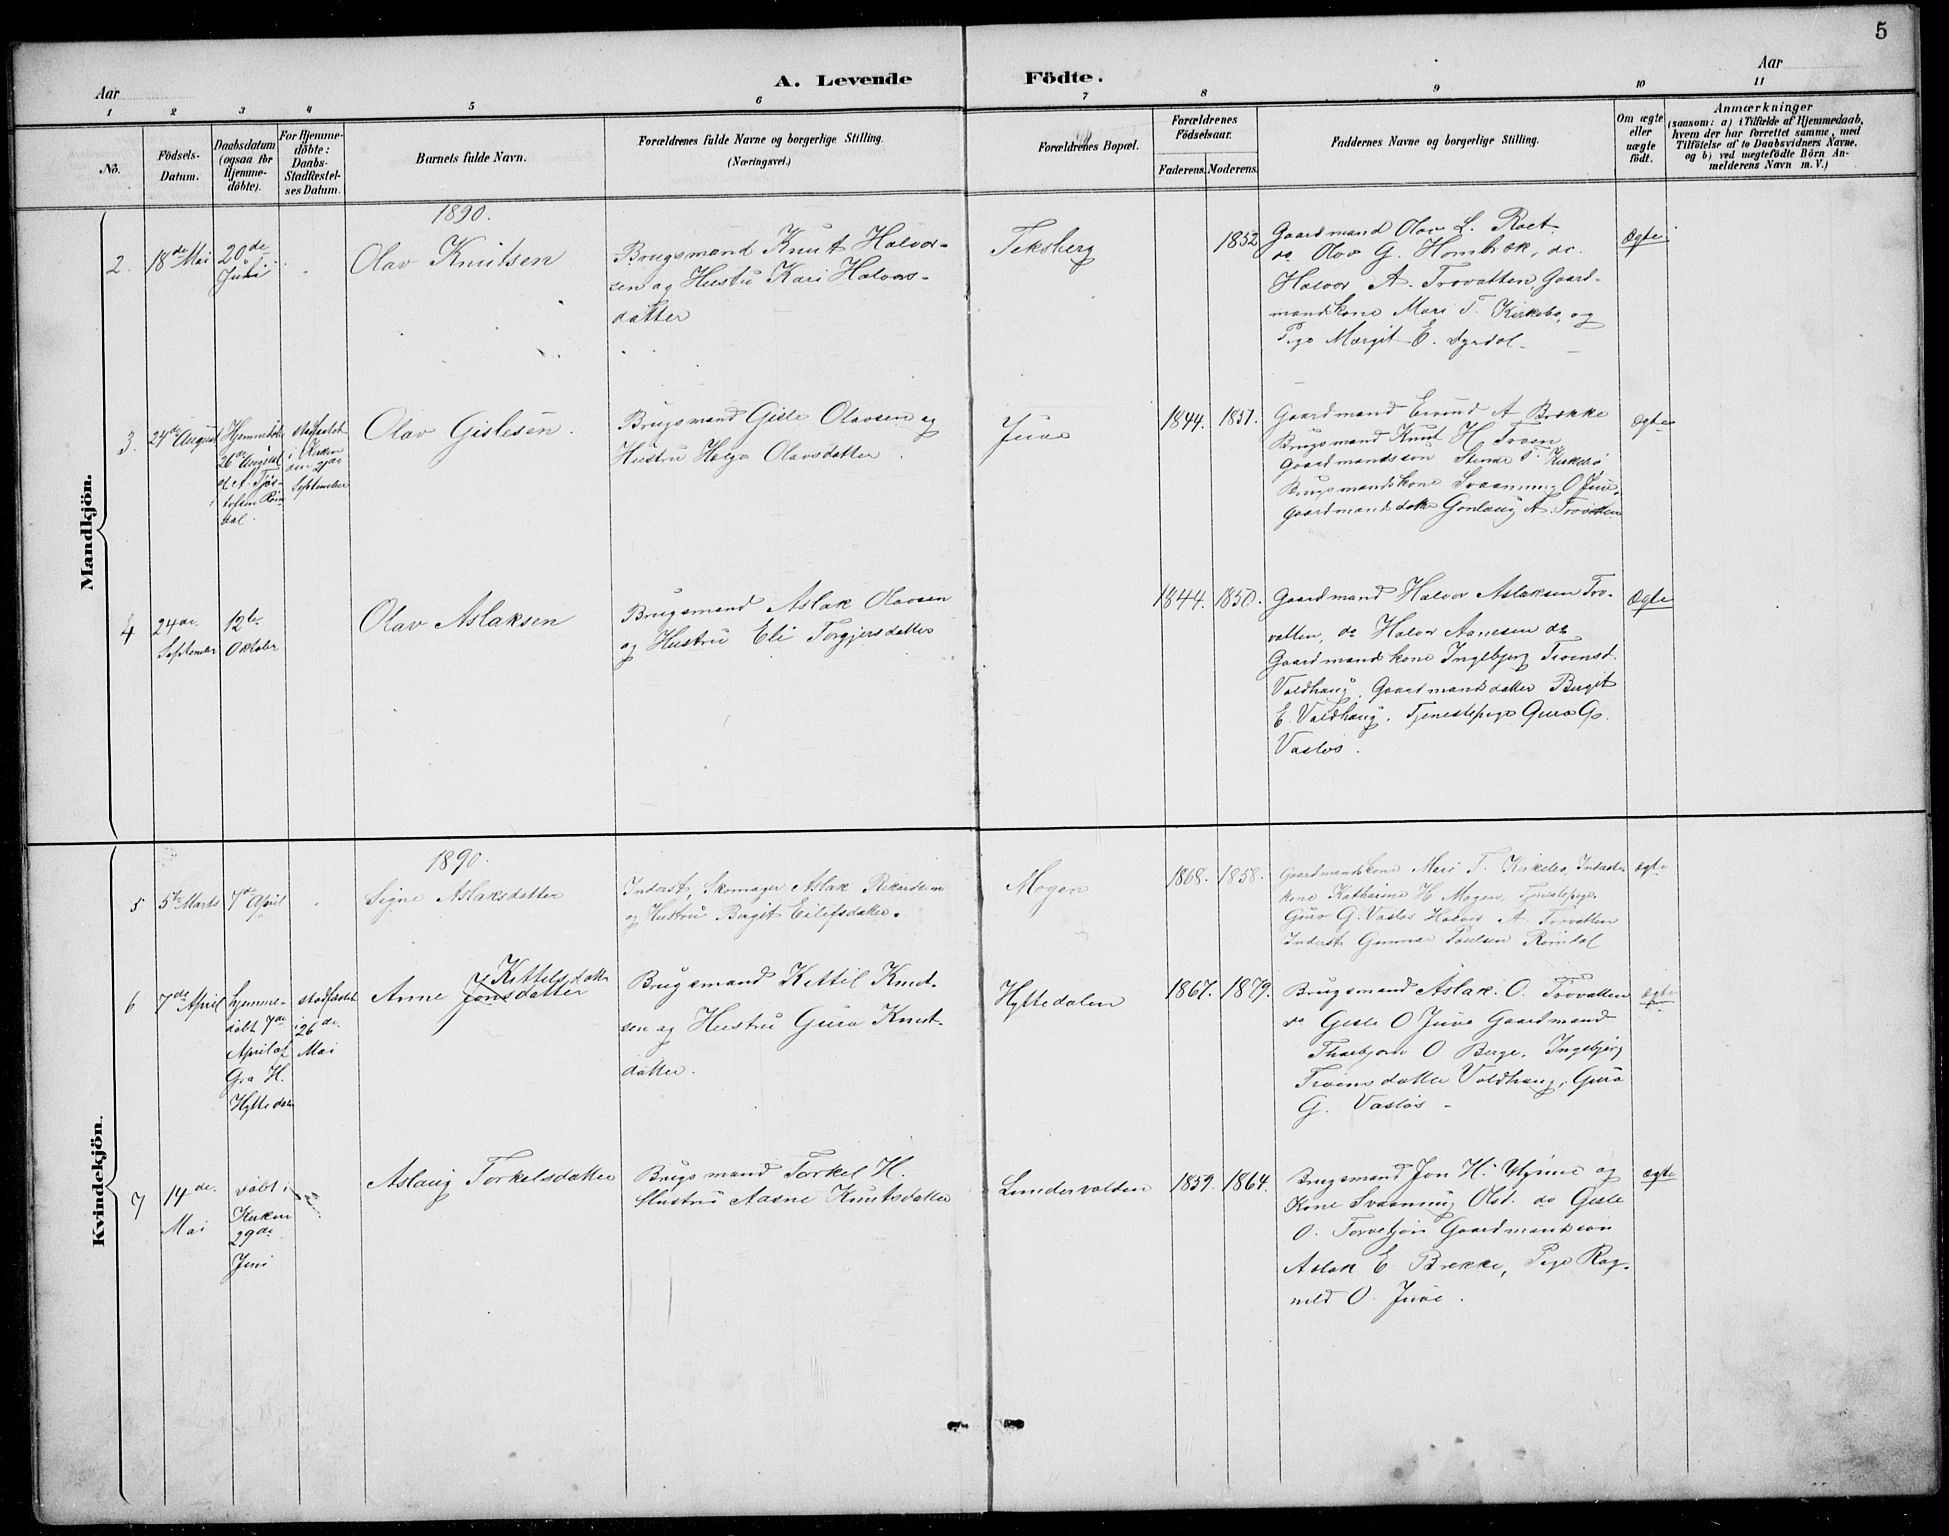 5
A. Levende Födte.
Aar
Aar
1 2 3 4 5 6 7 8 9 10 11
No.
Födsels-
Datum.
Daabsdatum
(ogsaa for
Hjemme-
döbte).
For Hjemme-
döbte:
Daabs-
Stadfæstel-
ses Datum.
Barnets fulde Navn.
Forældrenes fulde Navne og borgerlige Stilling.
(Næringsvei.)
Forældrenes Bopæl.
Forældrenes
Födselsaar.
Faderens. Moderens.
Faddernes Navne og borgerlige Stilling.
Om ægte
eller
uægte
födt.
Anmærkninger
(saasom: a) i Tilfælde af Hjemmedaab,
hvem der har forrettet samme, med
Tilföielse af to Daabsvidners Navne.
og b) ved uægtefödte Börn An-
melderens Navn m. V.)
Mandkjön.
1890.
2.
18de Mai
20de
Juli
Olav Knutsen
Brugsmand Knut Halvor-
sen og Hustru Kari Halvors-
datter
Teksberg
1852
Gaardmand Olav L. Roet
do Olav G. Hombæk, do.
Halvor A. Trovatten, Gaard-
mandskone Mari T. Kirkebø, og
Pige Margit E.
Ægte
3.
24de August
Hjemmedøbt
26de August
af A. Tjøs-
tolfsen Røm-
dal.
stadfæstet
i Kirken
den 21de
September
Olav Gislesen.
Brugsmand Gisle Olavsen og
Hustru Helge Olavsdatter.
Juve
1844. 1851.
Gaardmand Eivind A Brække
Brugsmand Knut H. Troen
Gaardmandssøn T. Kirkebø
Brugsmandskone Svanaug O Juve,
Gaardmandsdatter Gonlaug A. Trovatten
Ægte
4
24de
September
12te
Oktober
Olav Aslaksen
Brugsmand Aslak Olavsen
og Hustru Eli Torgjersdatter
1844. 1850.
Gaardmand Halvor Aslaksen Tro-
vatten, do Halvor Aanesen do
Gaardmandskone Ingebjørg Troensd.
Valdhaug, Gaardmandsdatter Bergit
E. Valdhaug. Tjenestepige Guro G.
Vasløs.
Ægte
Kvindekjön.
1890.
5
5te Marts
7de April
Signe Aslaksdatter
Inderst, Skomager Aslak Rikardsen
og Hustru Bergit Eilefsdatter.
Mogen
1868. 1858.
Gaardmandskone Mari T. Kirkebø, Inderst-
kone Katharine H. Mogen, Tjenestepige
Guro G. Vasløs Halvor A. Trovatten
Inderst Gunnar Poulsen Rømdal
Ægte
6
7de April
hjemme-
døbt 7de
April af
Gro H.
Hyttedalen
stadfæstet
26de
Mai
Kittelsdatter
Anne Jonsdatter
Brugsmand Kittil Knut-
sen og Hustru Guro Knut-
datter.
Hyttedalen
1867. 1879.
Brugsmand Aslak. O. Trovatten
do Gisle O Juve Gaardmand
Thorbjørn O Berge. Ingebjørg
Troensdatter Valdhaug, Guro
G. Vasløs -
Ægte
7
14de
Mai
døbt i
Kirken
29de
Juni
Aslaug Torkelsdatter
Brugsmand Torkel H.
Hustru Aasne Knutsdatter
Lundervolden
1859. 1864.
Brugsmand Jon H. og
Kone Svanaug Olsd. do Gisle
O. Torvetjøn Gaardmandssøn
Aslak E Brekke, Pige Rag-
nild O. Juve.
Ægte